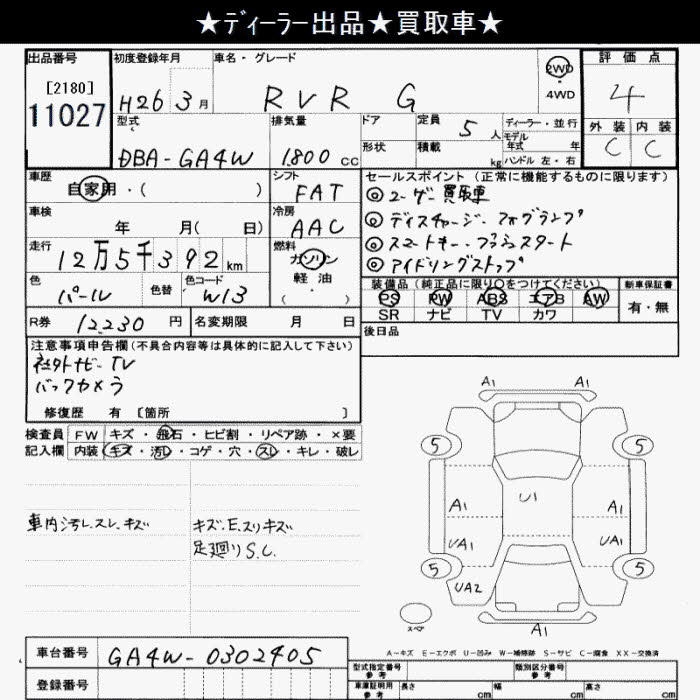 ★ディーラー出品★買取車★
出品番号
[2180]
11027
初度登録年月
H26 3月
車名・グレード
RVR G
2WD
・
4WD
評価点
4
外装 内装
C C
型式
DBA-GA4W
排気量
1,800 cc
ドア
形状
定員 5人
積載 kg
ディーラー・並行
モデル年式 年
ハンドル 左・右
車歴
自家用・( )
シフト
FAT
車検
年 月( 日)
冷房
AAC
走行
12万5千392km
燃料
ガソリン
軽油
( )
色
パール
色替
色コード
W13
R券 12,230 円
名変期限 月 日
セールスポイント (正常に機能するものに限ります)
◎ユーザー買取車
◎ディスチャージ・フォグランプ
◎スマートキー・プッシュスタート
◎アイドリングストップ
装備品(純正品に限り○をつけてください)
PS PW ABS エアB AW
SR ナビ TV カワ
新車保証書
有・無
後日品
注意事項申告欄(不具合内容等は具体的に記入して下さい)
社外ナビ・TV
バックカメラ
修復歴 有 [箇所 ]
検査員記入欄
FW キズ・飛石・ヒビ割・リペア跡・×要
内装 キズ・汚れ・コゲ・穴・スレ・キレ・破レ
車内汚レ.スレ.キズ
キズ.E.スリキズ
足廻りS.C.
A1 A1
5 5
A1 U1 A1
UA1 UA1
5 5
UA2
A1
スペア
A-キズ E-エクボ U-凹み W-補修跡 S-サビ C-腐食 XX-交換済
車台番号
GA4W-0302405
登録番号
型式指定番号
参考
類別区分番号
参考
車庫証明用
参考
長さ cm 幅 cm 高さ cm